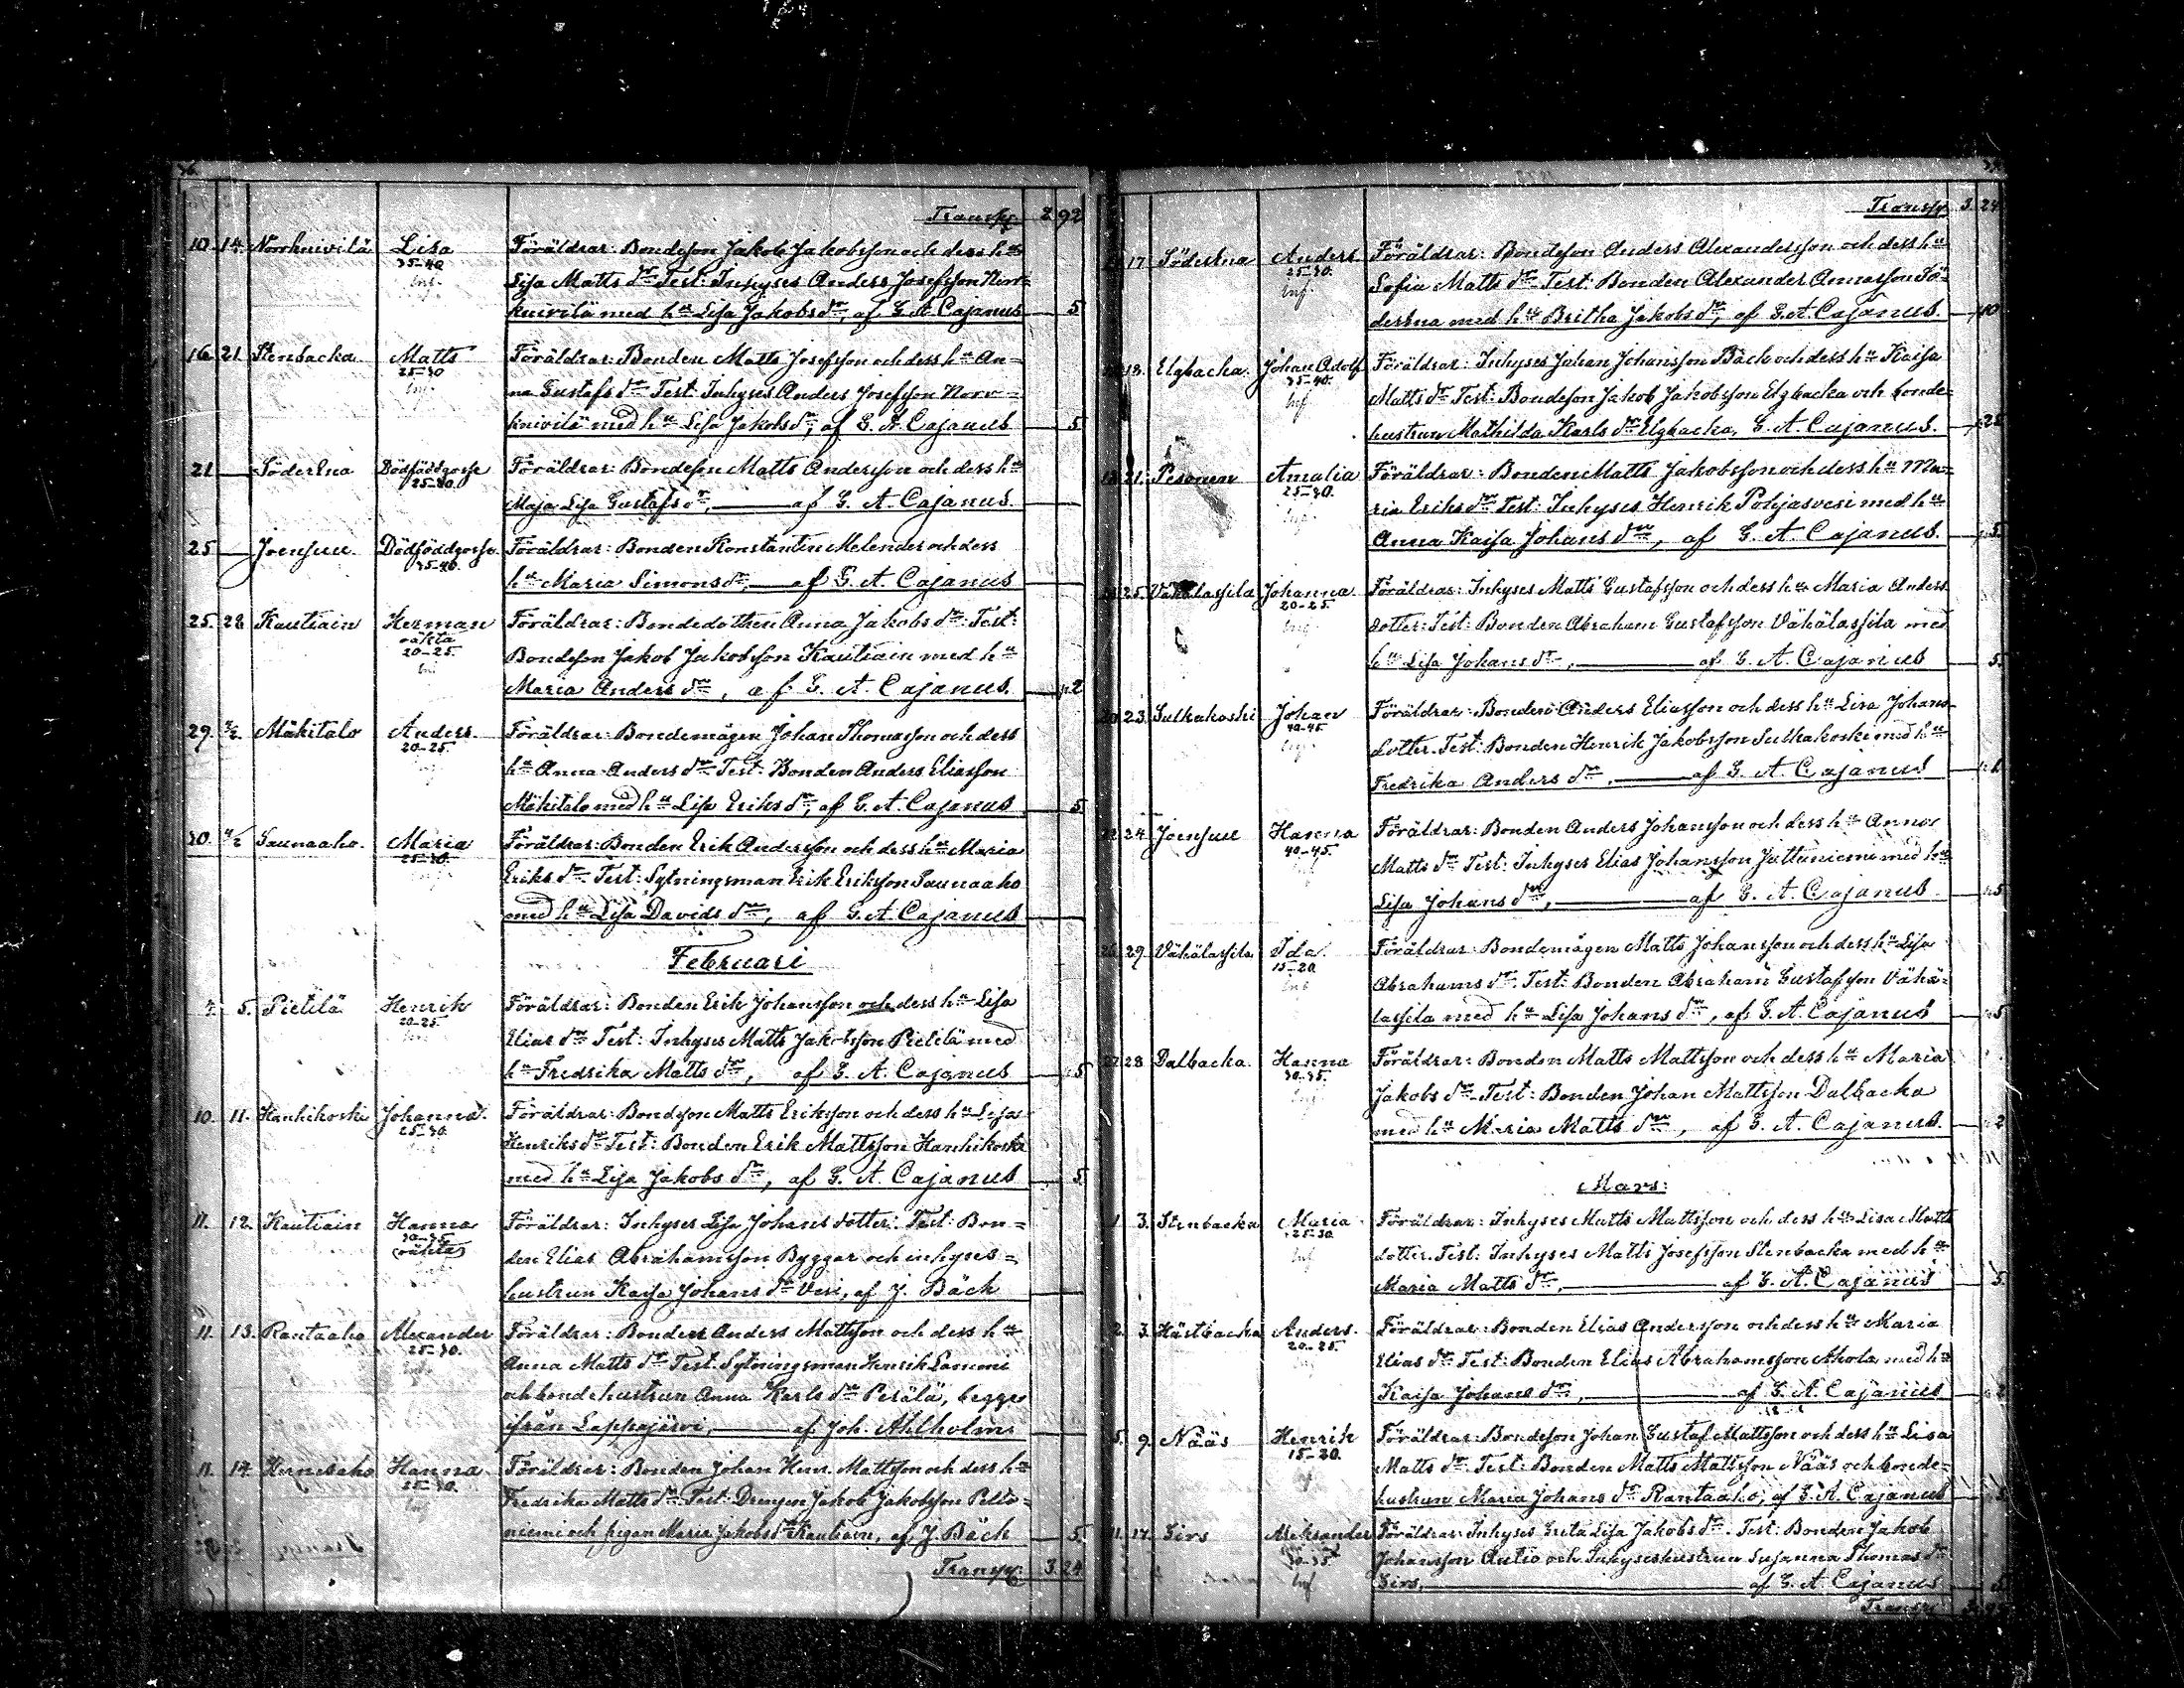 Transp. 2 92
10. 14. Norrknivilä Lisa Föräldrar: Bondeson Jakob Jakobsson och dess hu
35-40 Lisa Matts dr Test: Inhyses Anders Josefsson Norr=
knivilä med hu Lisa Jakobs dr, af G. A. Cajanus 5
16. 21. Stenbacka Matts Föräldrar: Bonden Matts Josefsson och dess hu An=
25-30 na Gustafs dr Test: Inhyses Anders Josefsson Norr=
knivilä med hu Lisa Jakobs dr, af G. A. Cajanus 5
21 Söderena Dödfödd gosse Föräldrar: Bondeson Matts Andersson och dess hu
25-30. Maja Lisa Gustafs dr, af G. A. Cajanus.
25 Joensuu Dödfödd gosse Föräldrar: Bonden Konstantin Melender och dess
35-40. hu Maria Simons dr, af G. A. Cajanus
25. 28 Kautiain Herman Föräldrar: Bondedottren Anna Jakobs dr. Test:
oäkta
20-25. Bondeson Jakob Jakobsson Kautiain med hu
Maria Anders dr, af G. A. Cajanus. 2
29. 2/2. Mäkitalo Anders Föräldrar: Bondemågen Johan Thomasson och dess
20-25. hu Anna Anders dr Test: Bonden Anders Eliasson
Mäkitalo med hu Lisa Eriks dr, af G. A. Cajanus 5.
30. 4/2 Saunaaho. Maria Föräldrar: Bonden Erik Andersson och dess hu Maria
25-30. Eriks dr Test: Sytningsman Erik Eriksson Saunaaho
med hu Lisa Davids dr, af G. A. Cajanus
Februari
5. Pietilä Henrik Föräldrar: Bonden Erik Johansson och dess hu Lisa
20-25. Elias dr Test: Inhyses Matts Jakobsson Pietilä med
hu Fredrika Matts dr, af G. A. Cajanus 5
10. 11. Hanhikoski Johanna. Föräldrar: Bondson Matts Eriksson och dess hu Lisa
25-30. Henriks dr Test: Bonden Erik Mattsson Hanhikoski
med hu Lisa Jakobs dr, af G. A. Cajanus 5.
11. 12. Kautiain Hanna Föräldrar: Inhyses Lisa Johans dotter. Test: Bon=
30-35 (oäkta) den Elias Abrahamsson Byggar och inhyses=
hustrun Kaisa Johans dr Vesi, af J. Bäck
11. 13. Rantaaho Alexander Föräldrar: Bonden Anders Mattsson och dess hu
25-30. Anna Matts dr Test: Sytningsman Henrik Lamoni
och bondehustrun Anna Karls dr Perälä, begge
ifrån Lappajärvi, af Joh. Ahlholm
11. 14. Hernesaho Hanna Föräldrar: Bonden Johan Henr. Mattsson och dess hu
25-30. Fredrika Matts dr Test: Drengen Jakob Jakobsson Pelto=
niemi och pigan Maria Jakobs dr Kautiain, af J. Bäck 5.
Transp: 3 24
Transp. 3. 24
17. Söderena Anders Föräldrar: Bondeson Anders Alexandersson och dess hu
25-30. Sofia Matts dr Test: Bonden Alexander Annasson Sö=
derena med hu Britha Jakobs dr, af G. A. Cajanus. 10
18. Elgbacka. Johan Adolf Föräldrar: Inhyses Johan Johansson Bäck och dess hu Kaisa
35-40. Matts dr Test: Bondeson Jakob Jakobsson Elgbacka och bonde=
hustrun Mathilda Karls dr Elgbacka, G. A. Cajanus. 25
21. Pesonen Amalia Föräldrar: Bonden Matts Jakobsson och dess hu Ma=
25-30. ria Eriks dr Test: Inhyses Henrik Pohjasvesi med hu
Anna Kaisa Johans dr, af G. A. Cajanus. 5
25. Vähälassila Johanna Föräldrar: Inhyses Matts Gustafsson och dess hu Maria Anders
20-25. dotter: Test: Bonden Abraham Gustafsson Vähälassila med
hu Lisa Johans dr, af G. A. Cajanus 5.
23. Sulkakoski Johan Föräldrar: Bonden Anders Eliasson och dess hu Lisa Johans
40-45. dotter. Test: Bonden Henrik Jakobsson Sulkakoski med hu
Fredrika Anders dr, af G. A. Cajanus
24. Joensuu Hanna Föräldrar: Bonden Anders Johansson och dess hu Anna
40-45. Matts dr Test: Inhyses Elias Johansson Juttuniemi med hu
Lisa Johans dr, af G. A. Cajanus 5
29. Vähälassila Ida. Föräldrar: Bondemågen Matts Johansson och dess hu Lisa
15-20 Abrahams dr. Test: Bonden Abraham Gustafsson Vähä=
lassila med hu Lisa Johans dr, af G. A. Cajanus 5
27. 28. Dalbacka. Hanna Föräldrar: Bonden Matts Mattsson och dess hu Maria
30-35. Jakobs dr Test: Bonden Johan Mattsson Dalbacka
med hu Maria Matts dr, af G. A. Cajanus. 2
Mars:
1. 3. Stenbacka Maria Föräldrar: Inhyses Matts Mattsson och dess hu Lisa Matts
25-30 dotter. Test: Inhyses Matts Josefsson Stenbacka med hu
Maria Matts dr, af G. A. Cajanus 5.
2. 3. Hästbacka Anders. Föräldrar: Bonden Elias Andersson och dess hu Maria
20-25. Elias dr Test: Bonden Elias Abrahamsson Ahola med hu
Kaisa Johans dr, af G. A. Cajanus 2
5. 9. Nääs Henrik Föräldrar: Bondeson Johan Gustaf Mattsson och dess hu Lisa
15-20. Matts dr Test: Bonden Matts Mattsson Nääs och bonde=
hustrun Maria Johans dr Rantaaho, af G. A. Cajanus
11. 17. Sirs Aleksander Föräldrar: Inhyses Greta Lisa Jakobs dr. Test: Bonden Jakob
30-35 Johansson Autio och Inhyseshustrun Susanna Thomas dr
Sirs, af G. A. Cajanus 5
Transp.